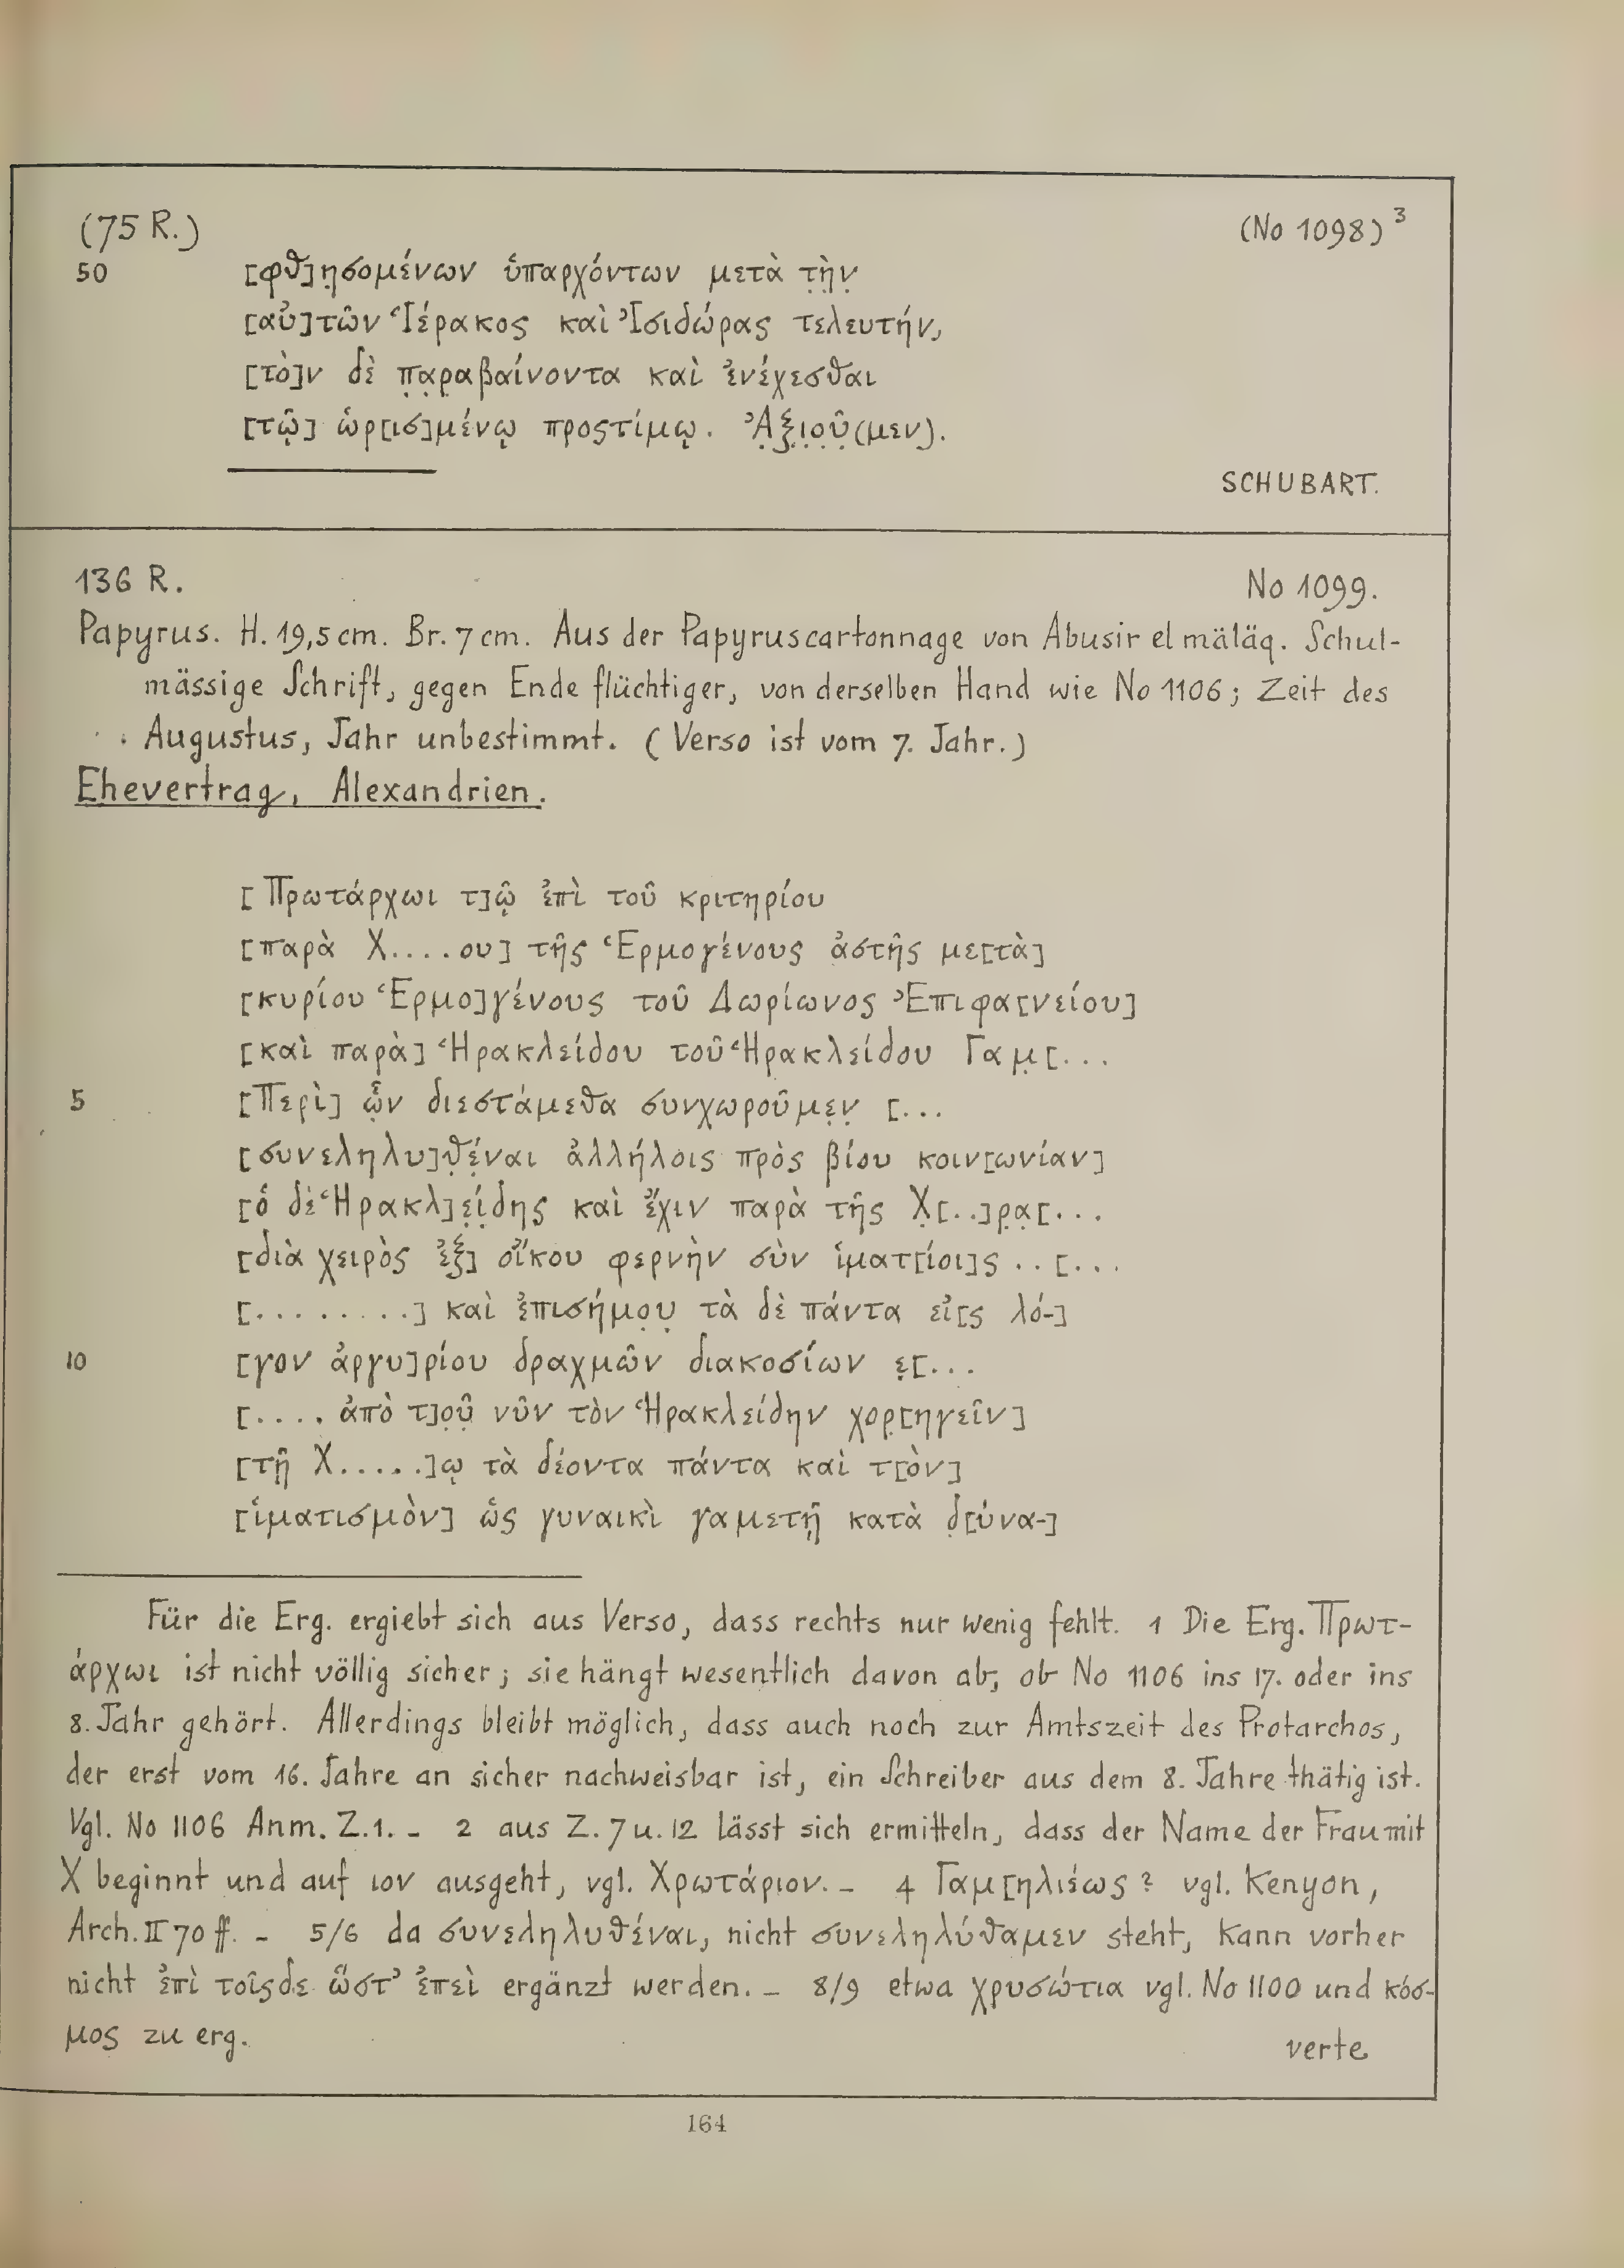 (75 R.) (No 1098) 3
50 [φθ]ησομένων ὑπαρχόντων μετὰ τὴν
[αὐ]τῶν Ἱέρακος καὶ Ἰσιδώρας τελευτήν,
[τὸ]ν δὲ παραβαίνοντα καὶ ἐνέχεσθαι
[τῷ] ὡρ[ισ]μένῳ προςτίμῳ. Ἀξιοῦ(μεν).
SCHUBART.
136 R. No 1099.
Papyrus. H. 19,5 cm. Br. 7 cm. Aus der Papyruscartonnage von Abusir el mäläq. Schul-
mässige Schrift, gegen Ende flüchtiger, von derselben Hand wie No 1106; Zeit des
Augustus, Jahr unbestimmt. (Verso ist vom 7. Jahr.)
Ehevertrag, Alexandrien.
[Πρωτάρχωι τ]ῷ ἐπὶ τοῦ κριτηρίου
[παρὰ Χ....ου] τῆς Ἑρμογένους ἀστῆς με[τὰ]
[κυρίου Ἑρμο]γένους τοῦ Δωρίωνος Ἐπιφα[νείου]
[καὶ παρὰ] Ἡρακλείδου τοῦ Ἡρακλείδου Γαμ[...
5 [Περὶ] ὧν διεστάμεθα συνχωροῦμεν [...
[συνεληλυ]θέναι ἀλλήλοις πρὸς βίου κοιν[ωνίαν]
[ὁ δὲ Ἡρακλ]είδης καὶ ἔχιν παρὰ τῆς Χ[..]ρα[...
[διὰ χειρὸς ἐξ] οἴκου φερνὴν σὺν ἱματ[ίοι]ς ..[...
[.........] καὶ ἐπισήμου τὰ δὲ πάντα εἰ[ς λό-]
10 [γον ἀργυ]ρίου δραχμῶν διακοσίων ε[...
[.... ἀπὸ τ]οῦ νῦν τὸν Ἡρακλείδην χορ[ηγεῖν]
[τῇ Χ.....]ῳ τὰ δέοντα πάντα καὶ τ[ὸν]
[ἱματισμὸν] ὡς γυναικὶ γαμετῇ κατὰ δ[ύνα-]
Für die Erg. ergiebt sich aus Verso, dass rechts nur wenig fehlt. 1 Die Erg. Πρωτ-
άρχωι ist nicht völlig sicher; sie hängt wesentlich davon ab, ob No 1106 ins 17. oder ins
8. Jahr gehört. Allerdings bleibt möglich, dass auch noch zur Amtszeit des Protarchos,
der erst vom 16. Jahre an sicher nachweisbar ist, ein Schreiber aus dem 8. Jahre thätig ist.
Vgl. No 1106 Anm. Z. 1. - 2 aus Z. 7 u. 12 lässt sich ermitteln, dass der Name der Frau mit
Χ beginnt und auf ιον ausgeht, vgl. Χρωτάριον. - 4 Γαμ[ηλιέως? vgl. Kenyon,
Arch. II 70 ff. - 5/6 da συνεληλυθέναι, nicht συνεληλύθαμεν steht, kann vorher
nicht ἐπὶ τοῖςδε ὥστ' ἐπεὶ ergänzt werden. - 8/9 etwa χρυσώτια vgl. No 1100 und κόσ-
μος zu erg. verte
164